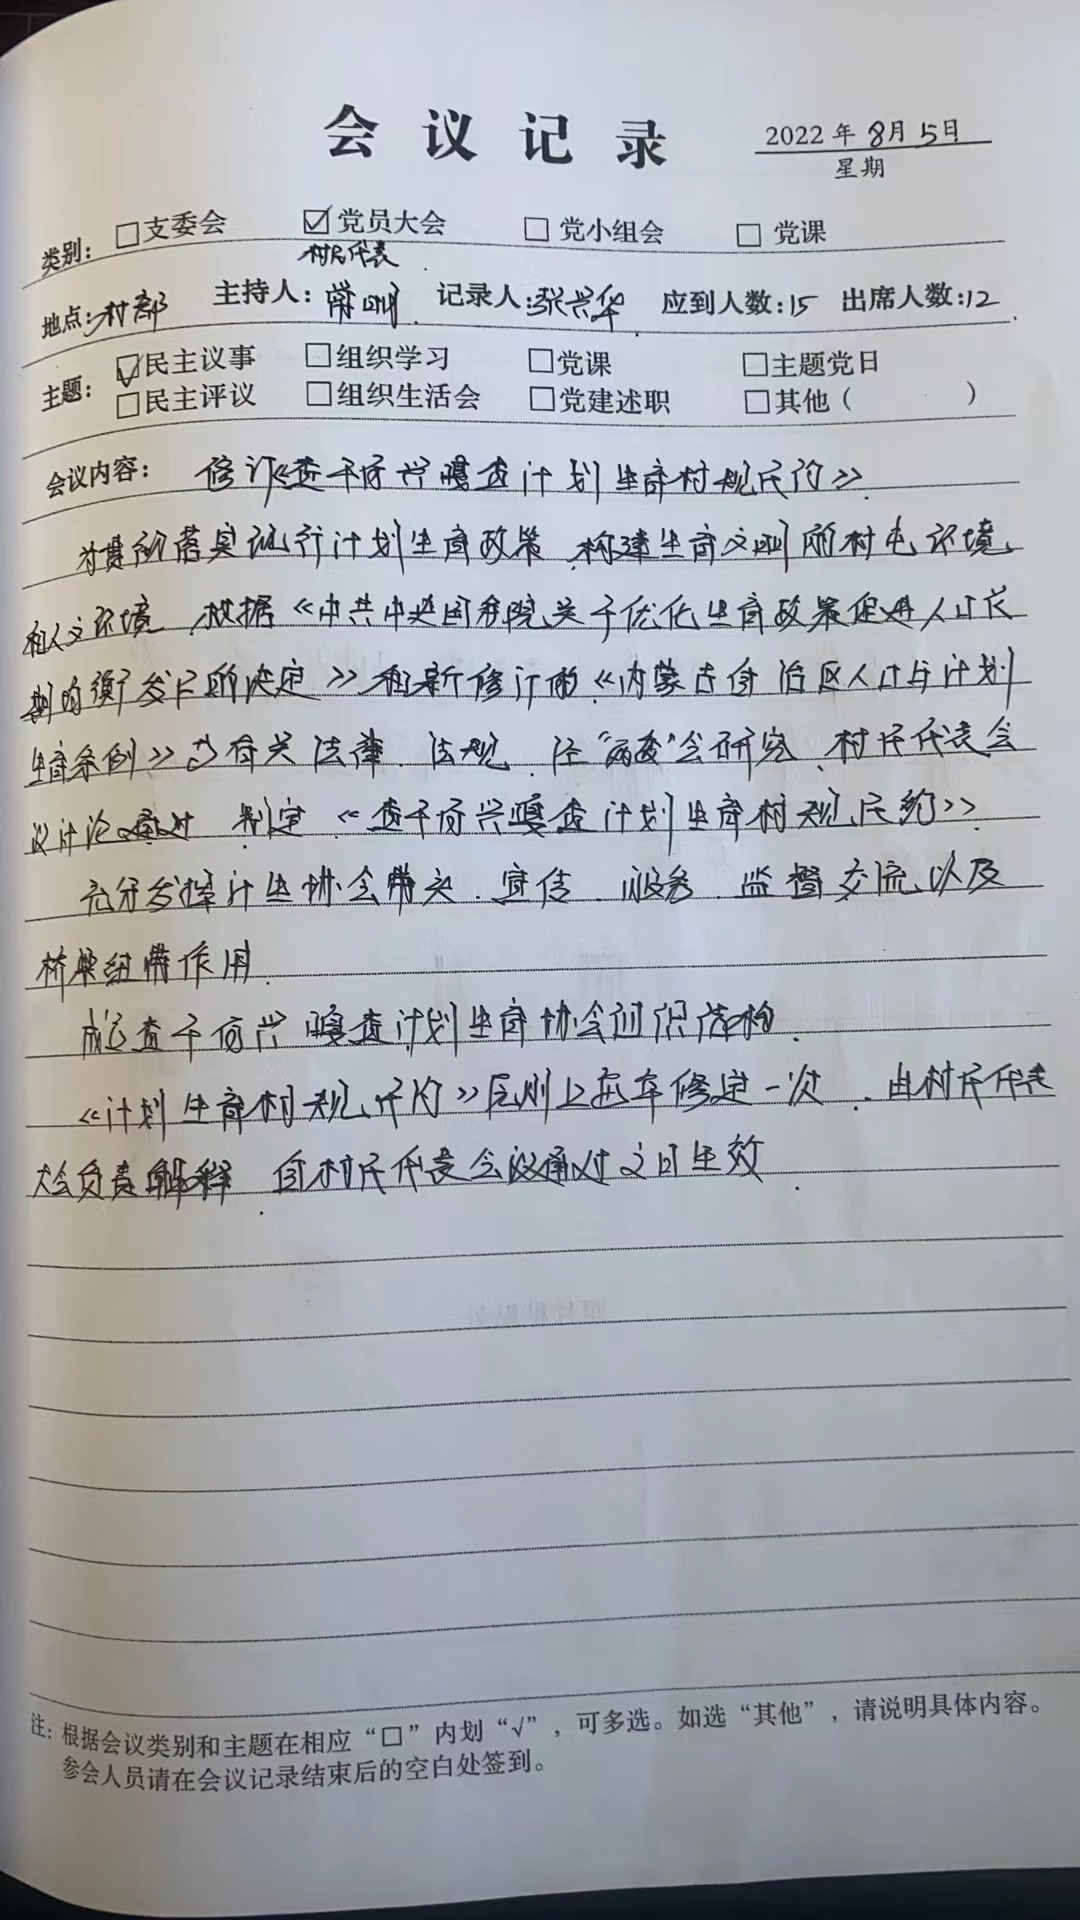 会议记录
2022年8月5日
星期
类别: □支委会 ☑党员大会 □党小组会 □党课
村民代表
地点:村部 主持人:常明 记录人:张兴华 应到人数:15 出席人数:12
主题: ☑民主议事 □组织学习 □党课 □主题党日
□民主评议 □组织生活会 □党建述职 □其他( )
会议内容: 修订《查干何兴嘎查计划生育村规民约》
为贯彻落实现行计划生育政策、构建生育文明的村屯环境
和人文环境、根据《中共中央国务院关于优化生育政策促进人口长
期均衡发展的决定》和新修订的《内蒙古自治区人口与计划
生育条例》为有关法律、法规、经“两委”会研究、村民代表会
议讨论通过 制定《查干何兴嘎查计划生育村规民约》
充分发挥计生协会带头、宣传、服务、监督交流以及
桥梁纽带作用.
成立查干何兴嘎查计划生育协会组织结构.
《计划生育村规民约》原则上每年修定一次、由村民代表
大会负责解释.自村民代表会议通过之日生效.
注:根据会议类别和主题在相应“□”内划“√”,可多选。如选“其他”,请说明具体内容。
参会人员请在会议记录结束后的空白处签到。